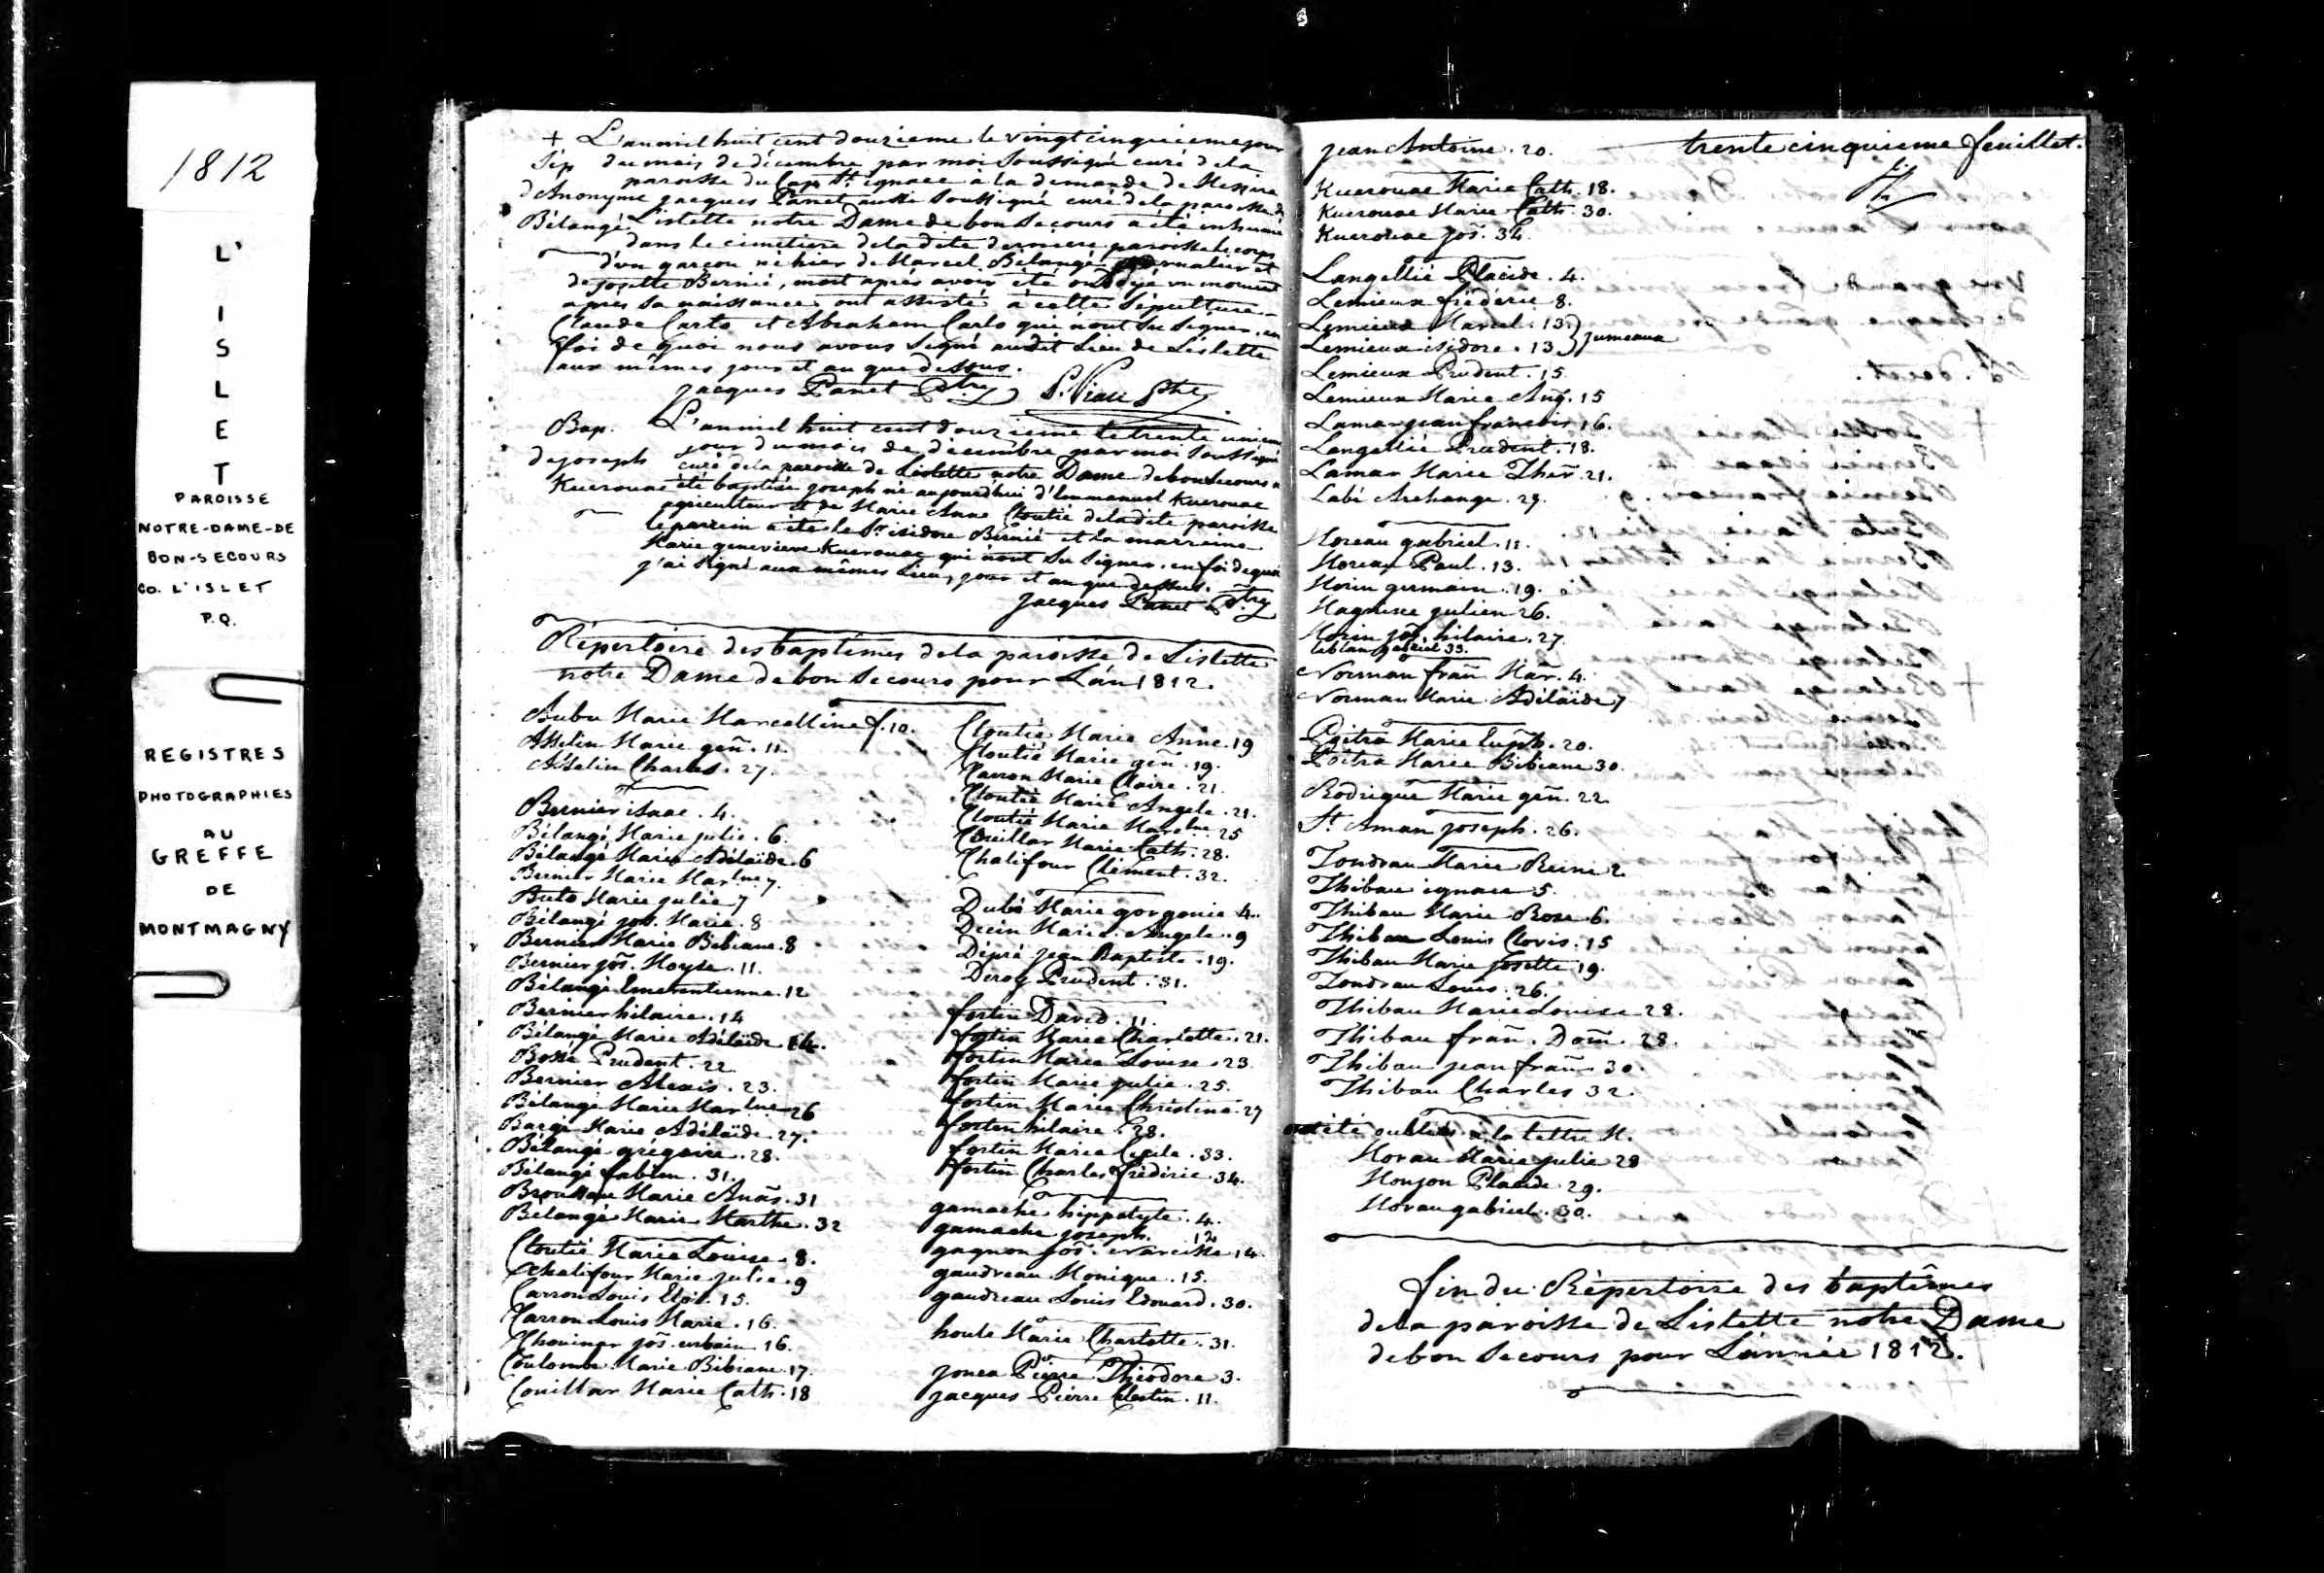 1812
L'
I
S
L
E
T
PAROISSE
NOTRE-DAME-DE
BON-SECOURS
CO. L'ISLET
P.Q.
REGISTRES
PHOTOGRAPHIES
AU
GREFFE
DE
MONTMAGNY
+ L'an mil huit cent douzieme le vingt cinquieme jour
Sép du mois de décembre par moi Soussigné curé de la
paroisse du Cap St. ignace à la demande de Messire
d'Anonyme jacques Panet aussi Soussigné curé de la paroisse de
Bélangé Lislette notre Dame de bon Secours a été inhumé
dans le cimetiere de la dite derniere paroisse le corps
d'un garçon né hier de Marcel Bélangé journalier et
de josette Bernié, mort après avoir été ondoyé un moment
après sa naissance ont assisté à cette Sépulture
Claude Carlo et Abraham Carlo qui n'ont Su Signer. en
foi de quoi nous avons Signé audit Lieu de Lislette
aux mêmes jour et an que dessus.
jacques Panet Ptre
Bap. L'an mil huit cent douzieme le trente unieme
jour du mois de décembre par moi Soussigné
de joseph curé de la paroisse de Lislette notre Dame de bon Secours a
Kuerouac été baptisé joseph né aujourdhui d'Emmanuel Kuerouac
agriculteur et de Marie Anne Cloutié de la dite paroisse
le parrein a été le Sr. isidore Bernié et la marreine
Marie genevieve Kuerouac qui n'ont Su Signer. en foi de quoi
j'ai Signé aux mêmes Lieu, jour et an que dessus.
jacques Panet Ptre
Répertoire des baptêmes de la paroisse de Lislette
notre Dame de bon Secours pour L'an 1812.
Aubu Marie Marcelline f. 10.
Asselin Marie gen. 11.
Asselin Charles. 27.
Bernier isaac. 4.
Bélangé Marie julie. 6.
Bélangé Marie Adélaïde. 6
Bernier Marie Marlne 7.
Buto Marie julie 7
Bélangé jos. Marie. 8
Bernier Marie Bibiane. 8
Bernier jos. Moyse. 11.
Bélangé Emerentienne. 12
Bernier hilaire. 14
Bélangé Marie Adélaïde 14.
Bosse Prudent. 22
Bernier Alexis. 23.
Bélangé Marie Marlne 26
Bargé Marie Adélaïde. 27.
Bélangé grégoire. 28.
Bélangé fabien. 31.
Brousseau Marie Anas. 31
Bélangé Marie Marthe. 32
Cloutié Marie Louise. 8.
Chalifour Marie julie. 9
Carron Louis Eloi. 15.
Carron Louis Marie. 16.
Chouinar jos. urbain 16.
Coulombe Marie Bibiane. 17.
Couillar Marie Cath. 18
Cloutié Marie Anne. 19
Cloutié Marie gen. 19.
Carron Marie Claire. 21.
Cloutié Marie Angele. 21.
Cloutié Marie Marlne. 25
Couillar Marie Cath. 28.
Chalifour Clément. 32.
Dubé Marie gorgonie 4.
Marie Angele. 9
Dépré jean Baptiste. 19.
Deroy Prudent. 31.
fortin David. 11.
fortin Marie Charlotte. 21.
fortin Marie Louise. 23.
fortin Marie julie. 25.
fortin Marie Christine. 27
fortin hilaire. 28.
fortin Marie Cécile. 33.
fortin Charles frédéric. 34.
gamache hippolyte. 4.
gamache joseph. 12
gagnon jos. narcisse 14.
gaudreau Monique. 15.
gaudreau Louis Edouard. 30.
houle Marie Charlotte. 31.
Pierre Théodore 3.
jacques Pierre Célestin. 11.
jean Antoine. 20. trente cinquieme feuillet.
Kuerouac Marie Cath. 18.
Kuerouac Marie Cath. 30.
Kuerouac jos. 34.
Langellié Placide. 4.
Lemieux fréderic 8.
Lemieux Marcel. 13.
Lemieux isidore. 13 } jumeaux
Lemieux Prudent. 15.
Lemieux Marie Ang. 15
Lamar jean francois 16.
Langellié Prudent. 18.
Lamar Marie Ther. 21.
Labé Archange. 29.
Moreau gabriel. 11.
Moreau Paul. 13.
Morin germain. 19.
julien 26.
Morin jos. hilaire. 27.
leblan gabriel 33.
Norman fran. Mar. 4.
Norman Marie Adélaïde 7
Poitra Marie Euph. 20.
Poitra Marie Bibiane 30.
Rodrigue Marie gen. 22
St. Aman joseph. 26.
Tondreau Marie Reine 2.
Thibau ignace 5.
Thibau Marie Rose 6.
Thibau Louis Clovis. 15
Thibau Marie josette 19.
Tondreau Louis. 26.
Thibau Marie Louise 28.
Thibau fran. Dom. 28.
Thibau jean fran. 30.
Thibau Charles 32.
ont été oubliés à la lettre M.
Morau Marie julie 28
Placide. 29.
Morau gabriel. 30.
fin du Répertoire des baptêmes
de la paroisse de Lislette notre Dame
de bon Secours pour L'année 1812.